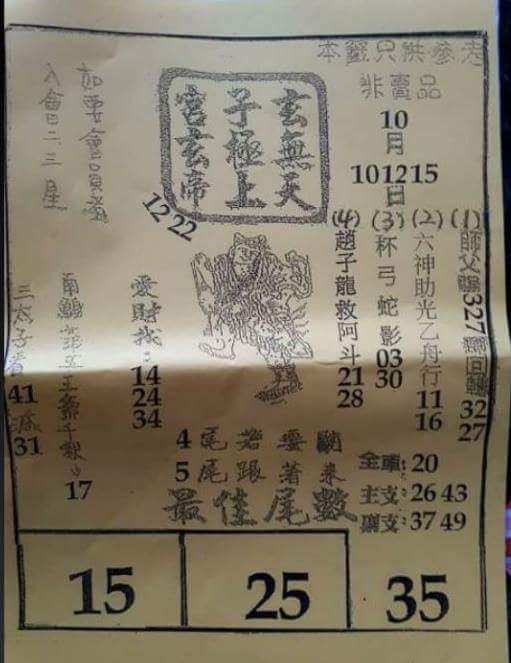 本籤只供參考
非賣品
10月
10 12 15日
玄無天
子極上
宮玄帝
12 22
(1) 師父賜327 32 27
(2) 六神助光乙舟行 11 16
(3) 杯弓蛇影 03 30
(4) 趙子龍救阿斗 21 28
愛財找: 14 24 34
17
三太子看 41 31
如要會員
入會 二三星
4尾若要
5尾跟著來
最佳尾數
全車:20
主支:26 43
副支:37 49
15
25
35